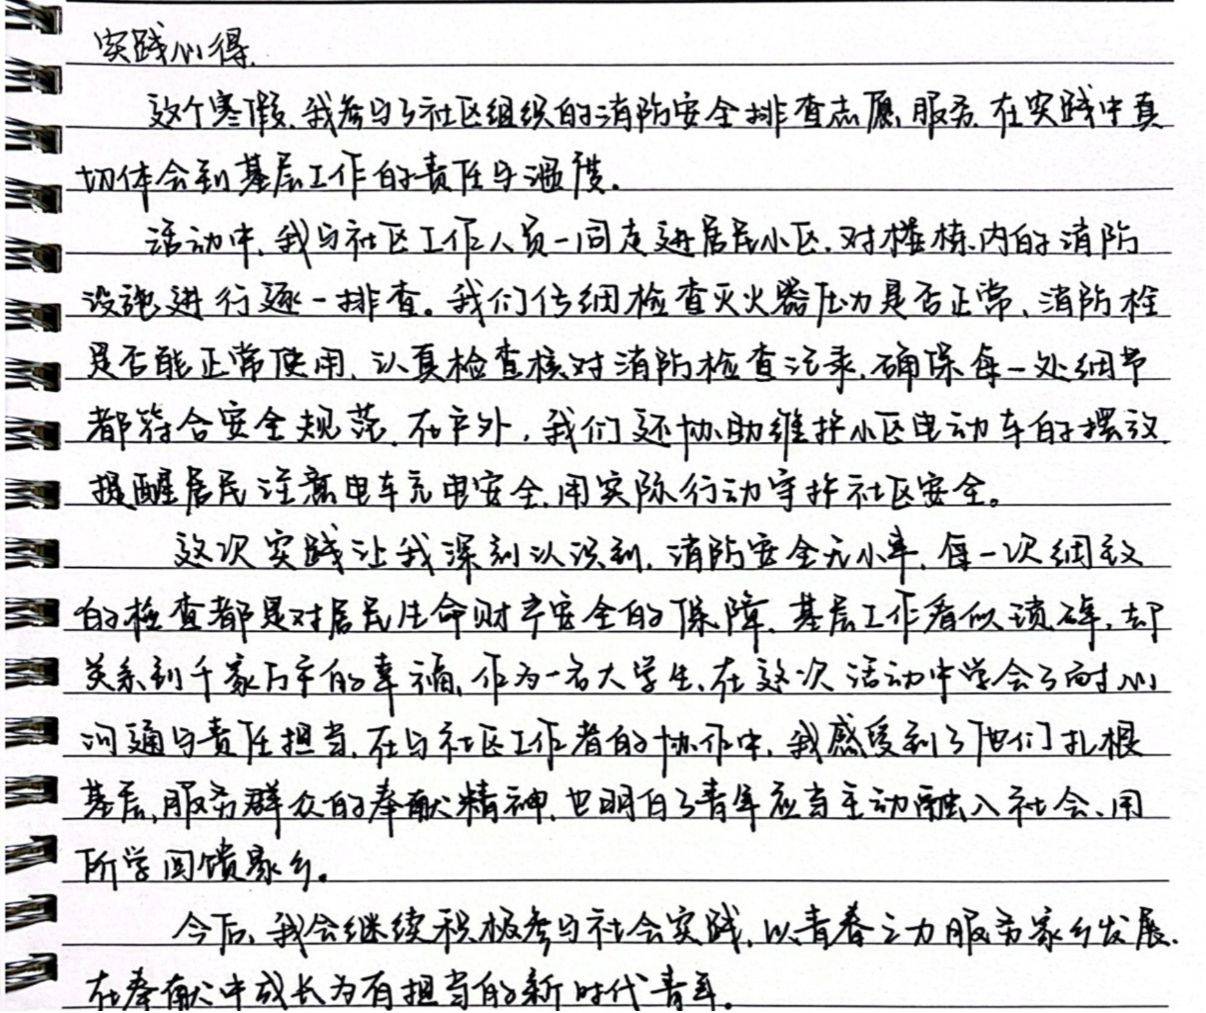 实践心得.
这个寒假,我参与了社区组织的消防安全排查志愿服务,在实践中真
切体会到基层工作的责任与温度。
活动中,我与社区工作人员一同走进居民小区,对楼栋内的消防
设施进行逐一排查。我们仔细检查灭火器压力是否正常、消防栓
是否能正常使用,认真检查核对消防检查记录,确保每一处细节
都符合安全规范,在户外,我们还协助维护小区电动车的摆放,
提醒居民注意电车充电安全,用实际行动守护社区安全。
这次实践让我深刻认识到,消防安全无小事,每一次细致
的检查都是对居民生命财产安全的保障,基层工作看似琐碎,却
关系到千家万户的幸福,作为一名大学生,在这次活动中学会了耐心
沟通与责任担当,在与社区工作者的协作中,我感受到了他们扎根
基层,服务群众的奉献精神,也明白了青年应当主动融入社会、用
所学回馈家乡。
今后,我会继续积极参与社会实践,以青春之力服务家乡发展,
在奉献中成长为有担当的新时代青年。